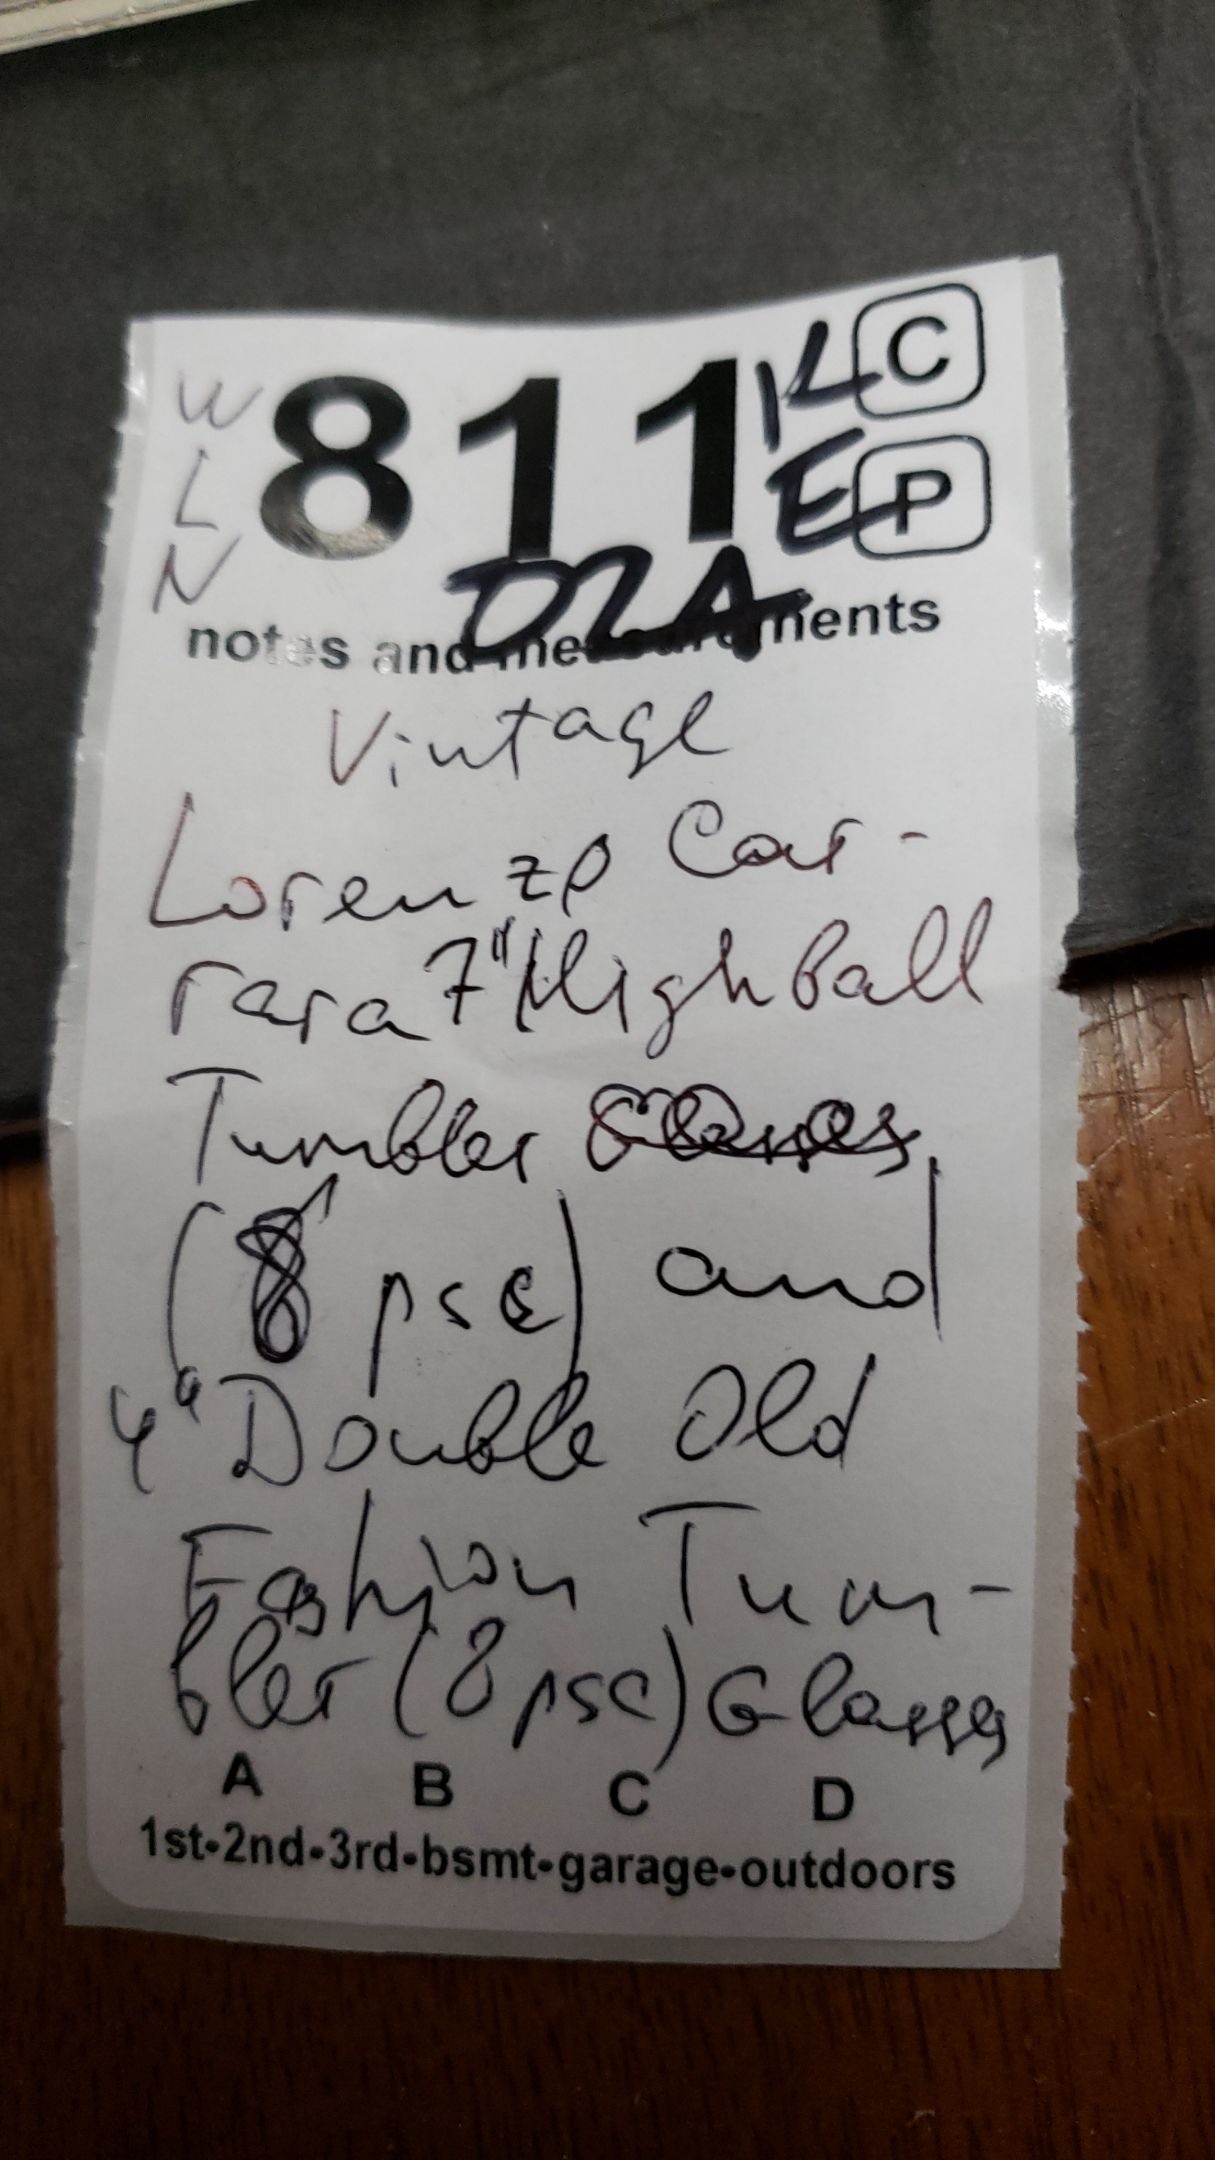 W
L
N
811
KE
C
P
DZA
notes and measurements
Vintage
Lorenzo Car-
rara 7" HighBall
Tumbler
(8 psc) and
4" Double Old
Fashion Tum-
bler (8 psc) Glasses
A B C D
1st•2nd•3rd•bsmt•garage•outdoors